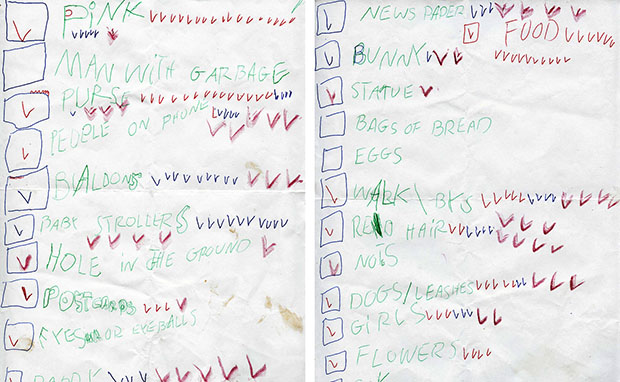 PINK
MAN WITH GARBAGE
PURSE
PEOPLE ON PHONE
BALOONS
BABY STROLLERS
HOLE IN THE GROUND
POSTCARDS
EYES OR EYEBALLS
NEWS PAPER
FOOD
BUNNY
STATUE
BAGS OF BREAD
EGGS
WALK
RED HAIR
NOIS
DOGS/LEASHES
GIRLS
FLOWERS